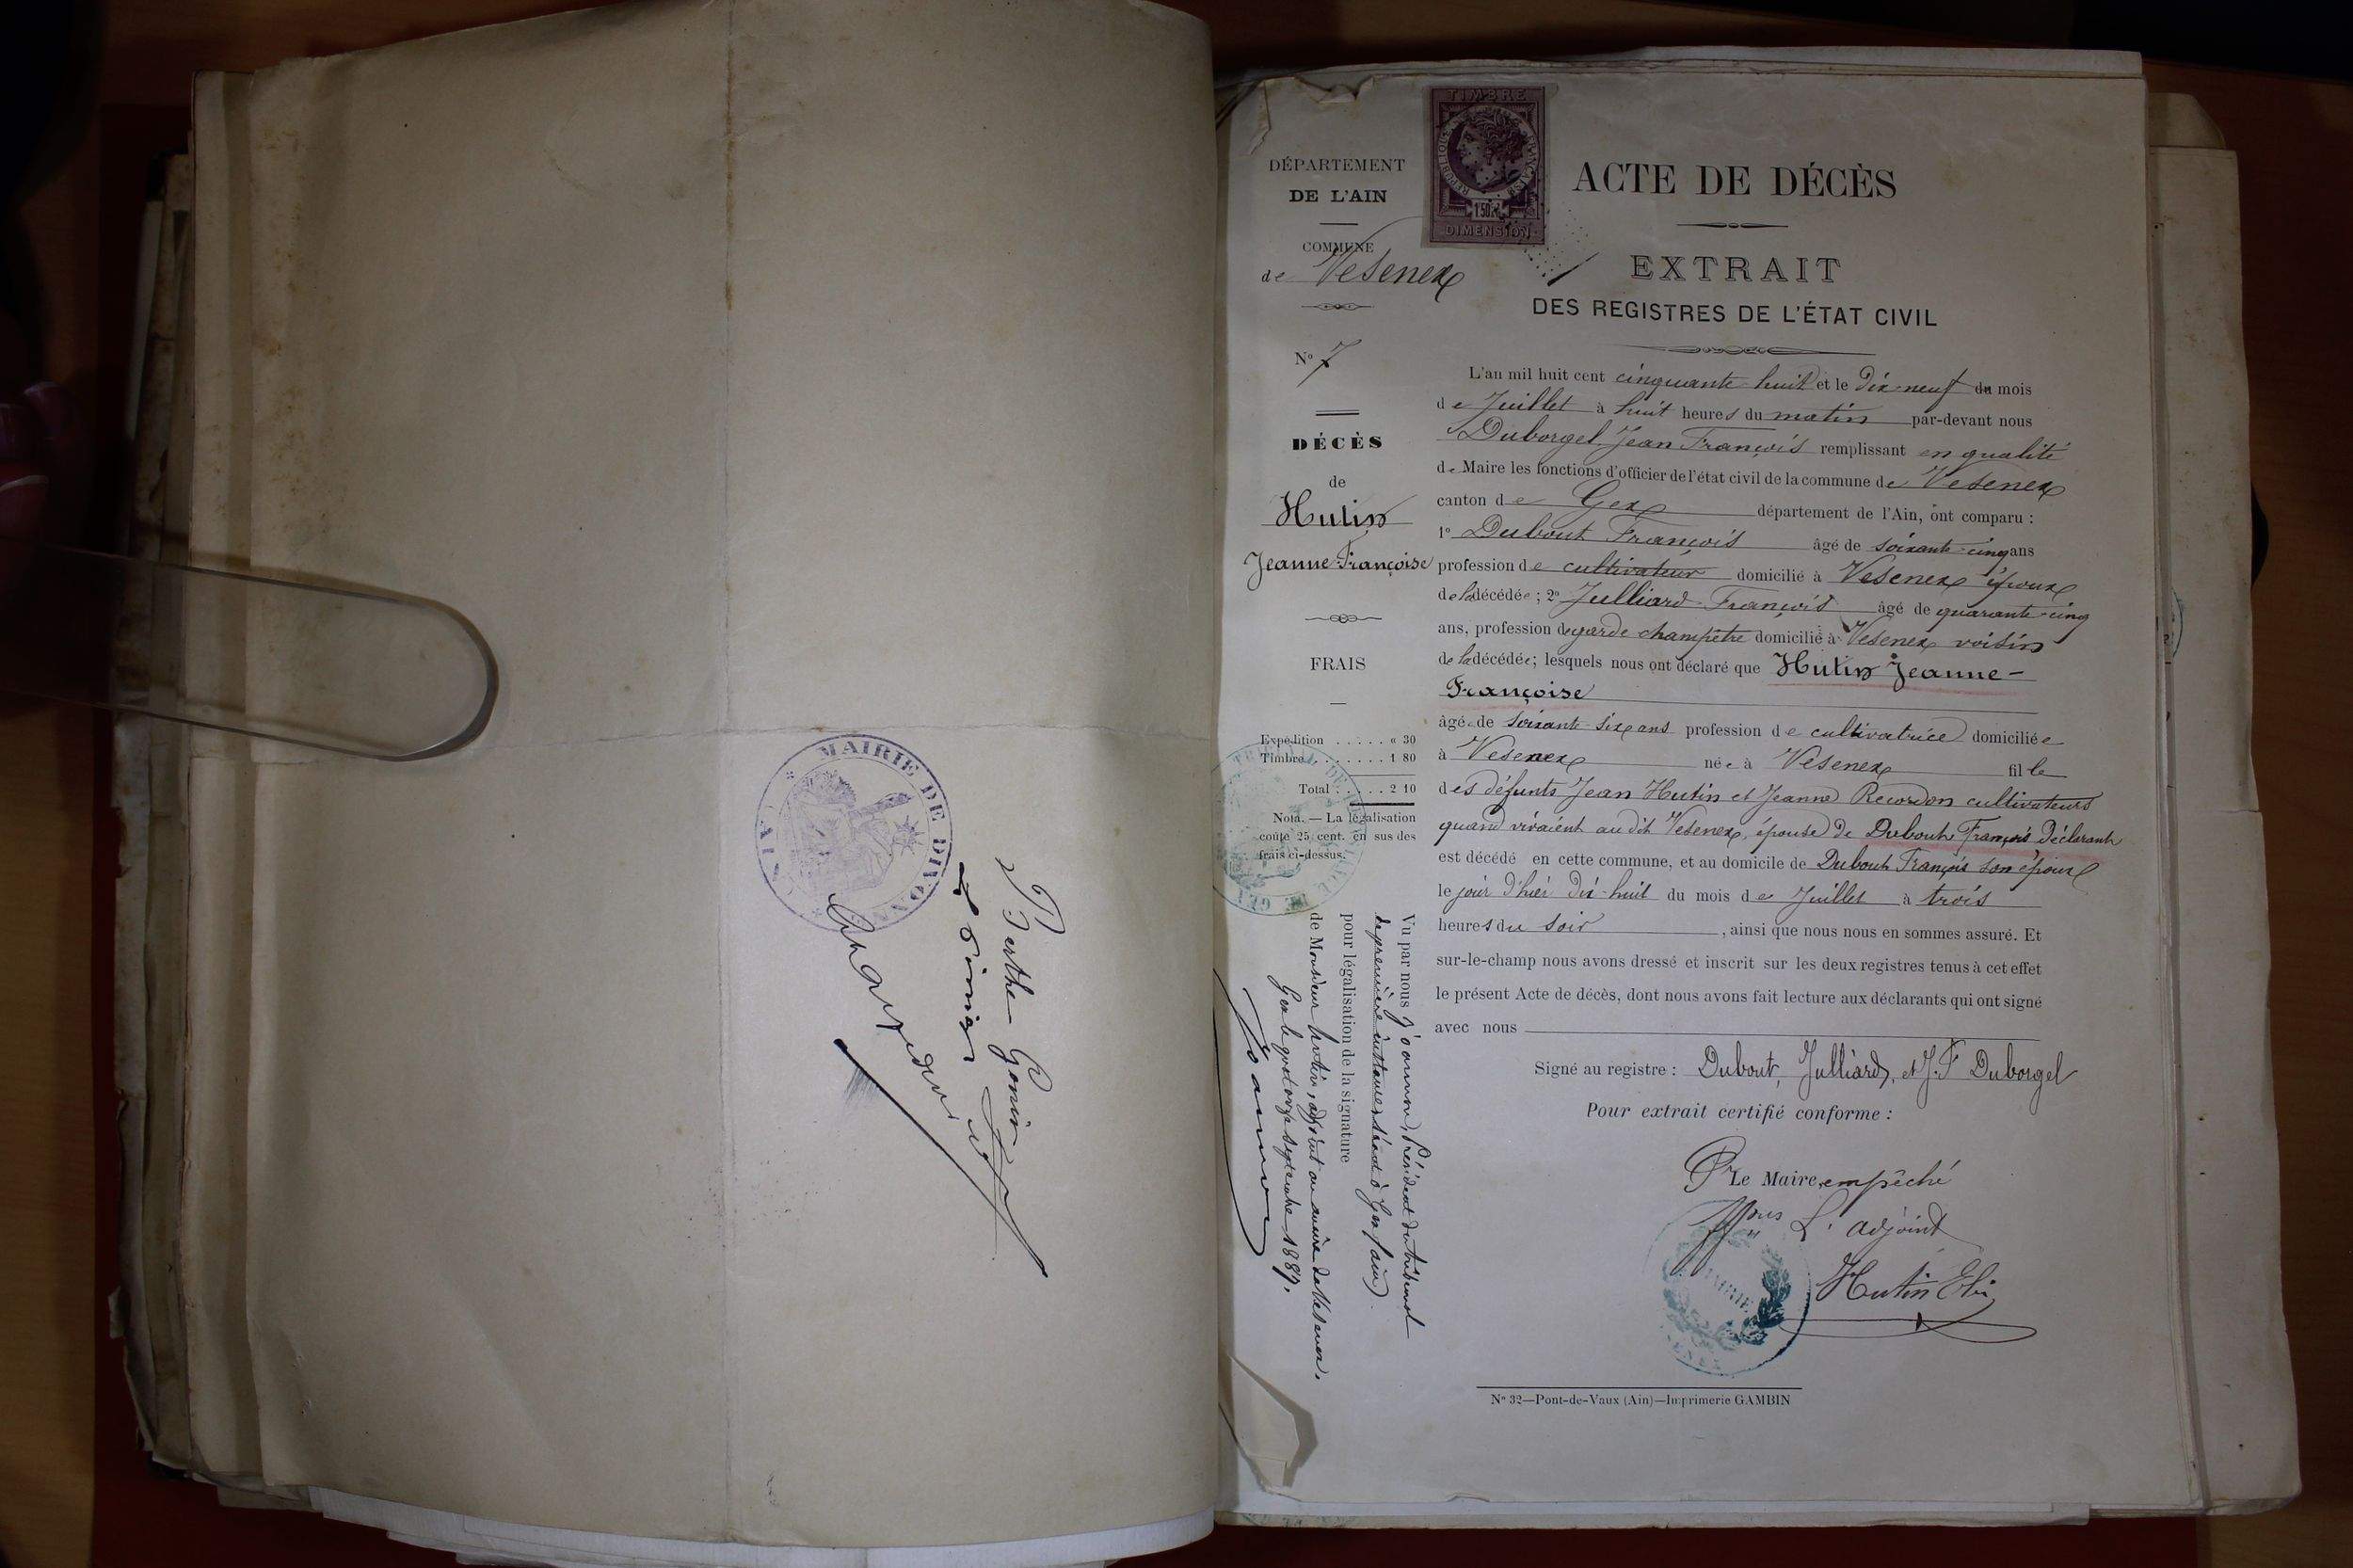 MAIRIE DE DIVONNE
* (AIN) *
Berthe Gonin
TIMBRE
REPUBLIQUE FRANÇAISE
1F50
DIMENSION
DÉPARTEMENT
DE L'AIN
COMMUNE
de Vesenex
N° 7
DÉCÈS
de
Hutin
Jeanne-Françoise
FRAIS
Expédition . . . . . « 30
Timbre . . . . . . . 1 80
Total . . . . . 2 10
Nota. — La légalisation
coûte 25 cent. en sus des
frais ci-dessus.
Vu par nous Joannon, Président du tribunal
de première instance séant à Gex (ain)
pour légalisation de la signature
de Monsieur hutin, adjoint au maire de Vesenex.
Gex le quatorze septembre 1887.
Joannon
ACTE DE DÉCÈS
EXTRAIT
DES REGISTRES DE L'ÉTAT CIVIL
L'an mil huit cent cinquante-huit et le Dix-neuf du mois
de Juillet à huit heures du matin par-devant nous
Duborgel Jean François remplissant en qualité
de Maire les fonctions d'officier de l'état civil de la commune de Vesenex
canton de Gex département de l'Ain, ont comparu :
1° Dubout François âgé de soixante-cinq ans
profession de cultivateur domicilié à Vesenex époux
de la décédée ; 2° Julliard François âgé de quarante-cinq
ans, profession de garde champêtre domicilié à Vesenex voisin
de la décédée ; lesquels nous ont déclaré que Hutin Jeanne-
Françoise
âgée de soixante-six ans profession de cultivatrice domiciliée
à Vesenex née à Vesenex fille
des défunts Jean Hutin et Jeanne Recordon cultivateurs
quand vivaient au dit Vesenex, épouse de Dubout François Déclarant
est décédé en cette commune, et au domicile de Dubout François son époux
le jour d'hier Dix-huit du mois de Juillet à trois
heures du soir , ainsi que nous nous en sommes assuré. Et
sur-le-champ nous avons dressé et inscrit sur les deux registres tenus à cet effet
le présent Acte de décès, dont nous avons fait lecture aux déclarants qui ont signé
avec nous
Signé au registre : Dubout, Julliard, et J. F Duborgel
Pour extrait certifié conforme :
Pr Le Maire empêché
L'adjoint
Hutin Eli
MAIRIE
N° 32—Pont-de-Vaux (Ain)—Imprimerie GAMBIN